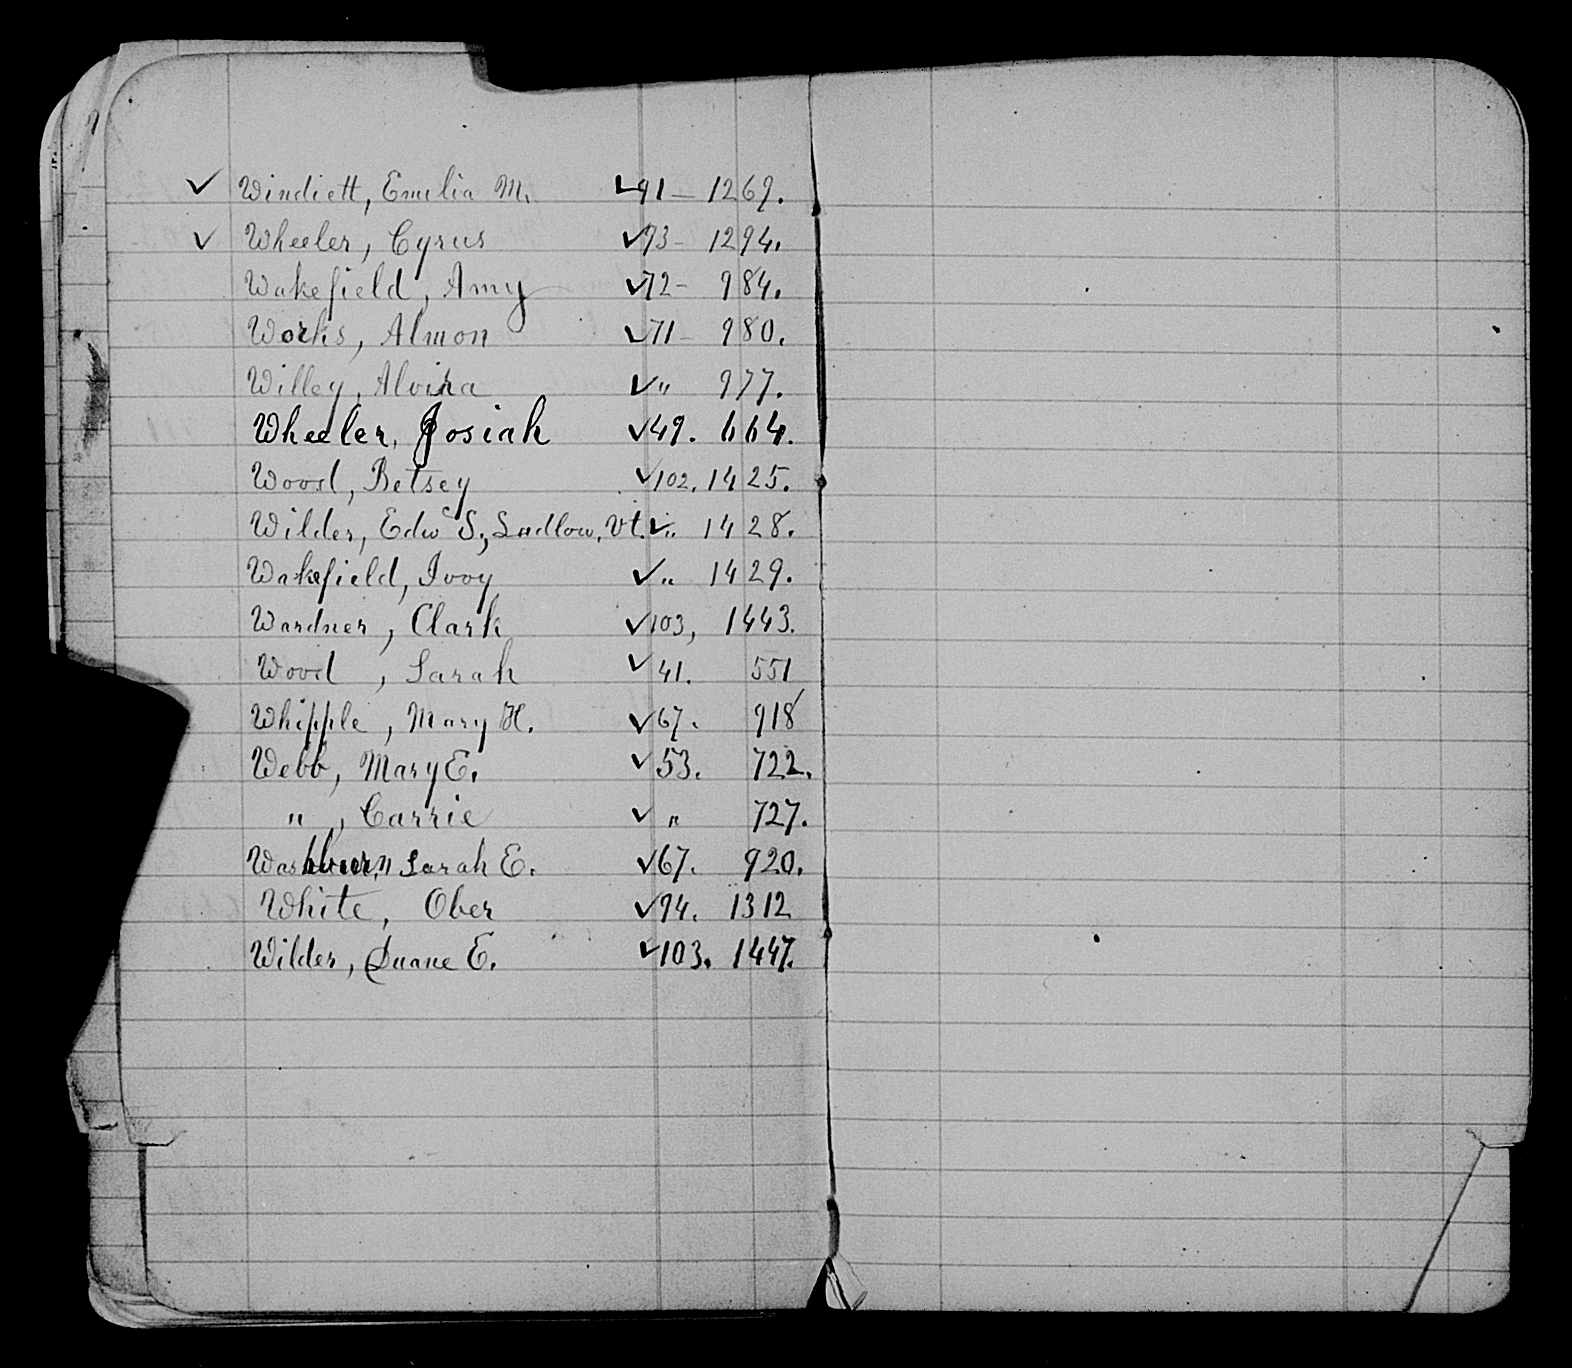 ✓ Windiett, Emelia M. ✓91 – 1269.
✓ Wheeler, Cyrus ✓93 – 1294.
Wakefield, Amy ✓72 – 984.
Works, Almon ✓71 – 980.
Willey, Alvira ✓ " 977.
Wheeler, Josiah ✓49. 664.
Wood, Betsey ✓102. 1425.
Wilder, Edwᶜ S., Ludlow, Vt. ✓ " 1428.
Wakefield, Ivoy ✓ " 1429.
Wardner, Clark ✓103, 1443.
Wood, Sarah ✓41. 551
Whipple, Mary H. ✓67. 918
Webb, Mary E. ✓53. 722.
" , Carrie ✓ " 727.
Washburn, Sarah E. ✓67. 920.
White, Ober ✓94. 1312
Wilder, Duane E. ✓103. 1447.